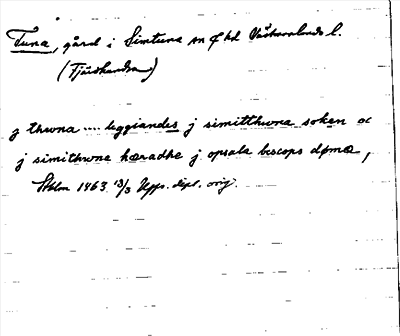 Tuna, gård i Simtuna sn o hd Västmanlands l.
(Fjärdhundra)
j thwna .... liggiandes j simitthwna soken oc
j simithwne hæradhe j opsala biscops døme,
Sthlm 1463 13/3 Upps. dipl. orig.